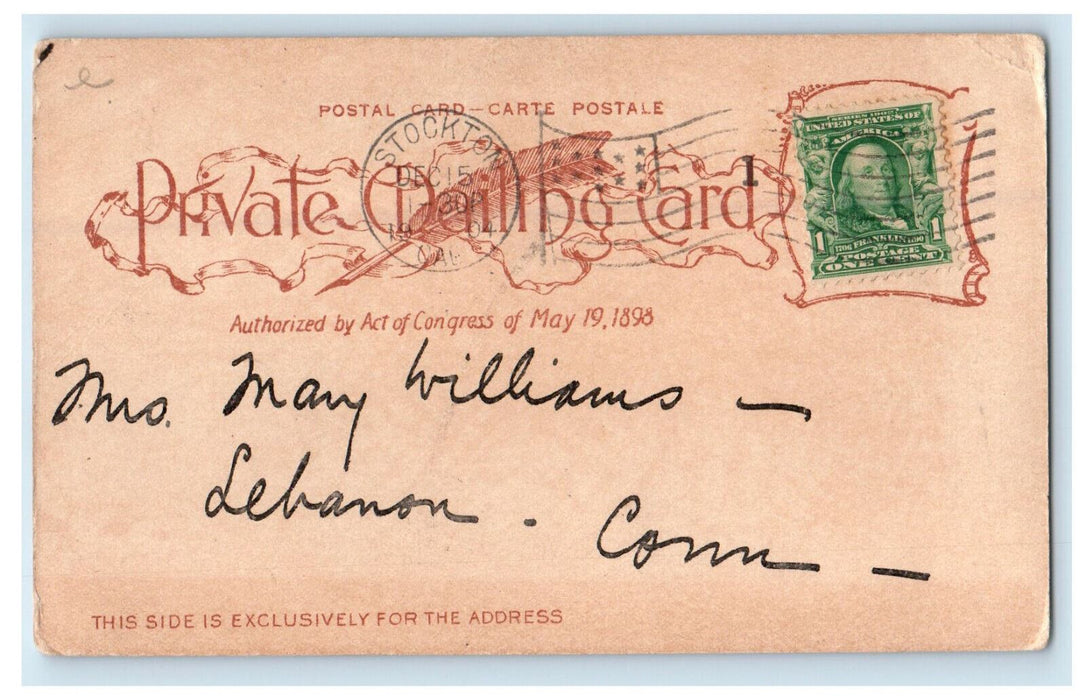 e
POSTAL CARD—CARTE POSTALE
STOCKTON
DEC 15
1904
CAL
Private Mailing Card
1
SERIES 1902
UNITED STATES OF
AMERICA
1 1706 FRANKLIN 1790 1
POSTAGE
ONE CENT
Authorized by Act of Congress of May 19, 1898
Mrs. Mary Williams —
Lebanon .
Conn —
THIS SIDE IS EXCLUSIVELY FOR THE ADDRESS